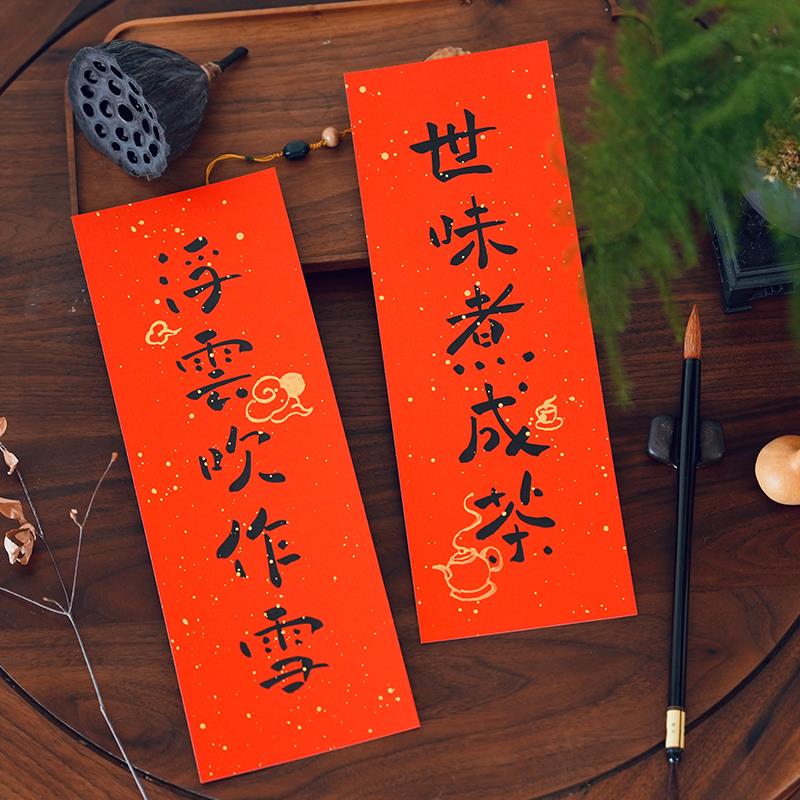 浮雲吹作雪
世味煮成茶